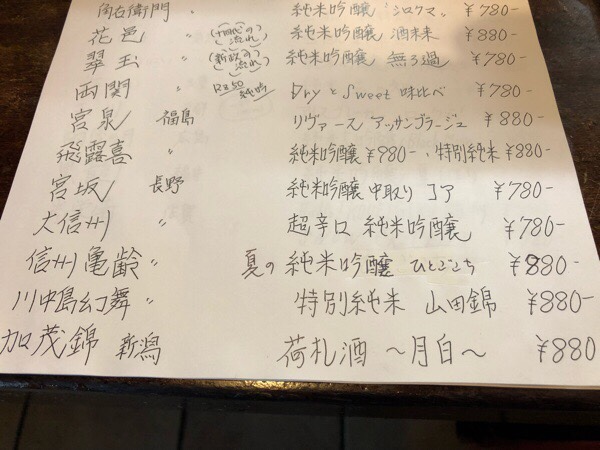 角右衛門 〃 純米吟醸 シロクマ ¥780-
花邑 〃 (十四代の流れ) 純米吟醸 酒未来 ¥880-
翠玉 〃 (新政の流れ) 純米吟醸 無ろ過 ¥780-
両関 〃 純吟 Dry と Sweet 味比べ ¥780-
宮泉 福島 リヴァース アッサンブラージュ ¥880-
飛露喜 〃 純米吟醸 ¥980-、特別純米 ¥880-
宮坂 長野 純米吟醸 中取り コア ¥780-
大信州 〃 超辛口 純米吟醸 ¥780-
信州亀齢 〃 夏の純米吟醸 ひとごこち ¥880-
川中島幻舞 〃 特別純米 山田錦 ¥880-
加茂錦 新潟 荷札酒 〜月白〜 ¥880